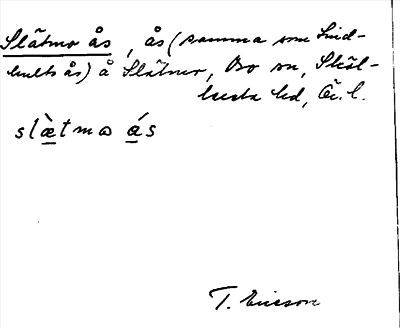 Slätmo ås, ås (samma som Lind-
hults ås) å Slätmo, Bo sn, Sköl-
lersta hd, Ög. l.
slæ̀tmω ás
T. Ericsson